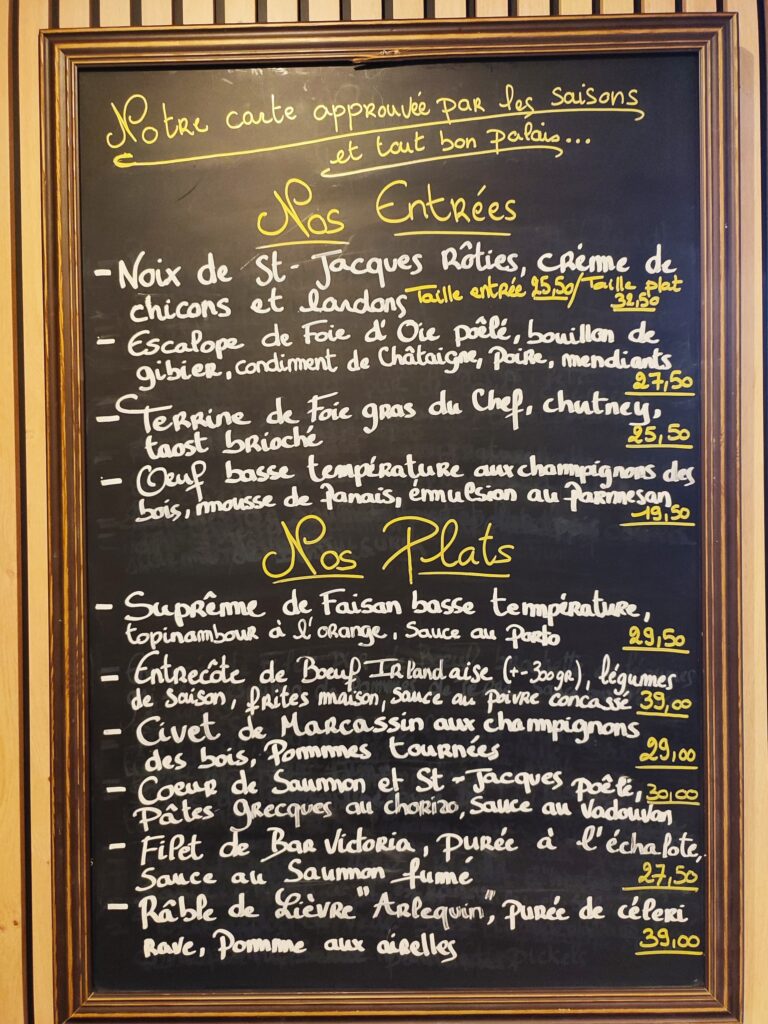 Notre carte approuvée par les saisons
et tout bon palais...
Nos Entrées
- Noix de St-Jacques Rôties, crème de
chicons et lardons Taille entrée 25,50/Taille plat
32,50
- Escalope de Foie d'Oie poêlé, bouillon de
gibier, condiment de Châtaigne, poire, mendiants
27,50
- Terrine de Foie gras du Chef, chutney,
taost brioché 25,50
- Oeuf basse température aux champignons des
bois, mousse de Panais, émulsion au Parmesan
19,50
Nos Plats
- Suprême de Faisan basse température,
topinambour à l'orange, Sauce au Porto 29,50
- Entrecôte de Boeuf Irlandaise (+-300gr), légumes
de saison, frites maison, sauce au poivre concassé 39,00
- Civet de Marcassin aux champignons
des bois, Pommes tournées 29,00
- Coeur de Saumon et St-Jacques poêlé, 30,00
Pâtes grecques au chorizo, Sauce au Vadouvan
- Filet de Bar Victoria, purée à l'échalote,
Sauce au Saumon fumé 27,50
- Râble de Lièvre "Arlequin", purée de céleri
rave, Pomme aux airelles 39,00